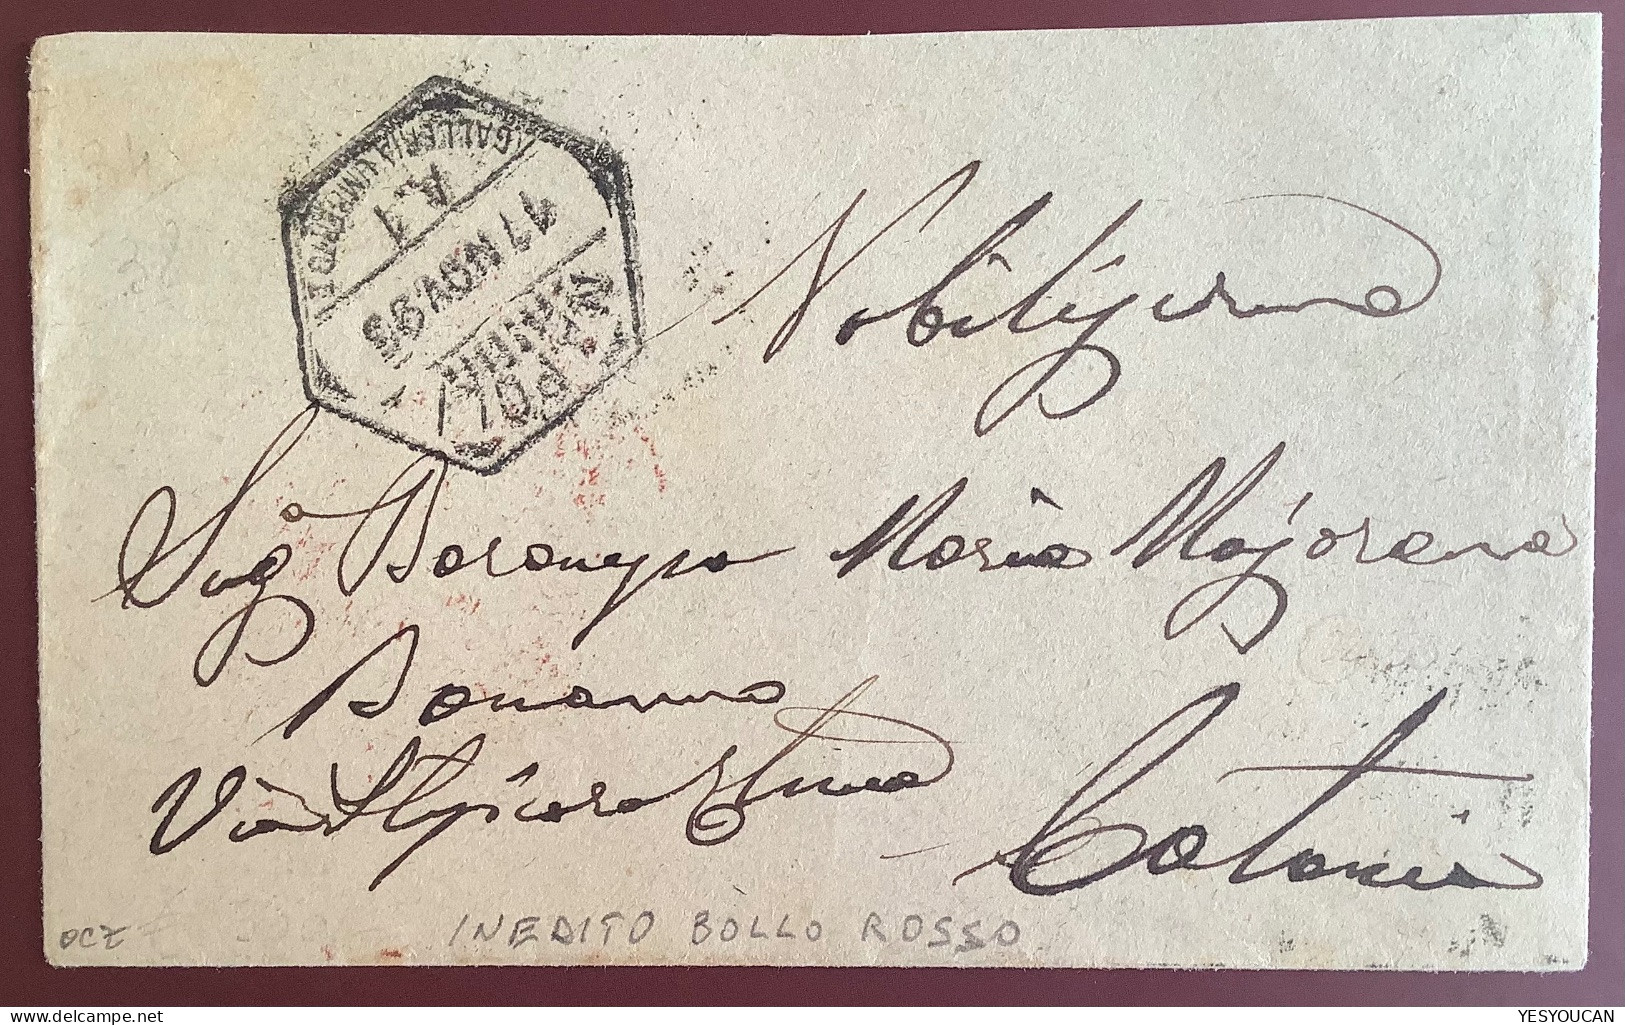 GALLERIA UMBERTO I.
A. 1
17 NOV. 95
NAPOLI
Nobilissima
Sig.a Baronessa Maria Majorana
Bonanno
Via Stesicoro Etnea
Catania
OCZ
INEDITO BOLLO ROSSO
YESYOUCAN